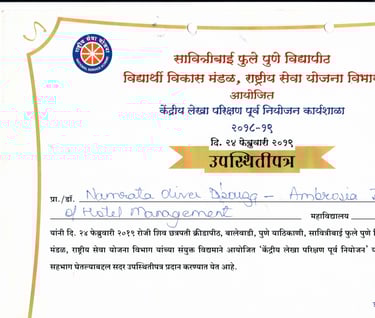 राष्ट्रीय सेवा योजना
सावित्रीबाई फुले पुणे विद्यापीठ
विद्यार्थी विकास मंडळ, राष्ट्रीय सेवा योजना विभा
आयोजित
केंद्रीय लेखा परिक्षण पूर्व नियोजन कार्यशाळा
२०१८-१९
दि. २४ फेब्रुवारी २०१९
उपस्थितीपत्र
प्रा./डॉ. Namrata Oliver - Ambrosia
of Hotel Management महाविद्यालय
यांनी दि. २४ फेब्रुवारी २०१९ रोजी शिव छत्रपती क्रीडापीठ, बालेवाडी, पुणे याठिकाणी, सावित्रीबाई फुले पुणे
मंडळ, राष्ट्रीय सेवा योजना विभाग यांच्या संयुक्त विद्यमाने आयोजित 'केंद्रीय लेखा परिक्षण पूर्व नियोजन'
सहभाग घेतल्याबद्दल सदर उपस्थितीपत्र प्रदान करण्यात येत आहे.